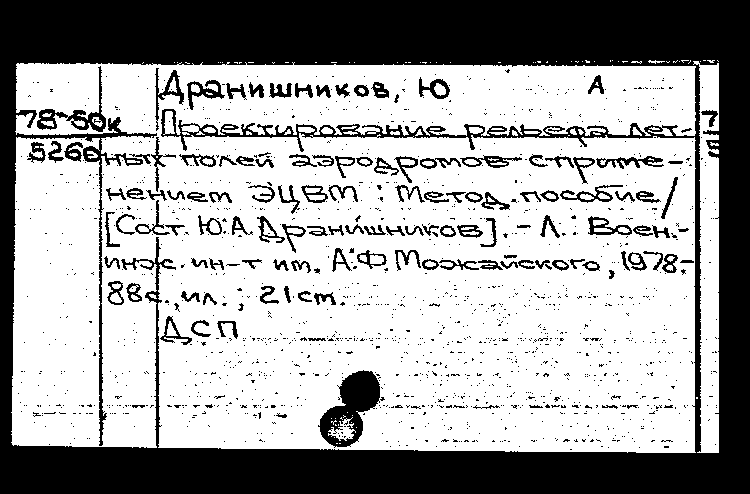 Дранишников, Ю А
78-50к Проектирование рельефа лет- 7
5260 ных полей аэродромов с приме-
нением ЭЦВМ : Метод. пособие /
[Сост. Ю.А. Дранишников]. - Л. : Воен.-
инж. ин-т им. А.Ф. Можайского, 1978.-
88с., ил. ; 21 cm.
ДСП